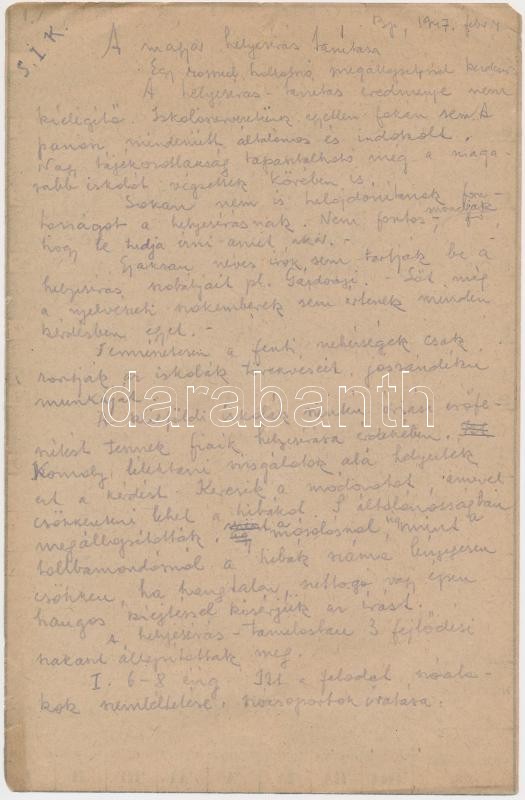 Bp, 1947. febr. 4
S. I. K.
A magyar helyesírás tanítása
Egy rosszul hallható megállapítással kezdem
A helyesírás-tanítás eredménye nem
kielégítő. Iskolaszervezetünk egyetlen fokán sem. A
panasz mindenütt általános és indokolt.
Nagy tájékozatlanság tapasztalható még a maga-
sabb iskolát végzettek körében is.
Sokan nem is tulajdonítanak fon-
tosságot a helyesírásnak. Nem fontos, mondják, fő,
hogy le tudja írni amit akar. -
Gyakran neves írók sem tartják be a
helyesírás szabályait pl. Gárdonyi. - Sőt még
a nyelvészeti szakemberek sem értenek minden
kérdésben egyet. -
Természetesen a fenti nehézségek csak
rontják az iskolák törekvéseit, jószándékú
munkáját.
A külföldi iskolák szintén óriási erőfe-
szítést tesznek fiaik helyesírása érdekében.
Komoly lélektani vizsgálatok alá helyezték
ezt a kérdést. Keresik a módozatot, amivel
csökkenteni lehet a hibákat. S általánosságban
megállapították, a másolásnál, mint a
tollbamondásnál a hibák száma lényegesen
csökken, ha hangtalan, suttogó vagy éppen
hangos kiejtéssel kísérjük az írást.
A helyesírás-tanításban 3 fejlődési
szakaszt állapítottak meg.
I. 6-8 évig. Itt a feladat szóala-
kok szemléltetése, szócsoportok íratása.
darabanth